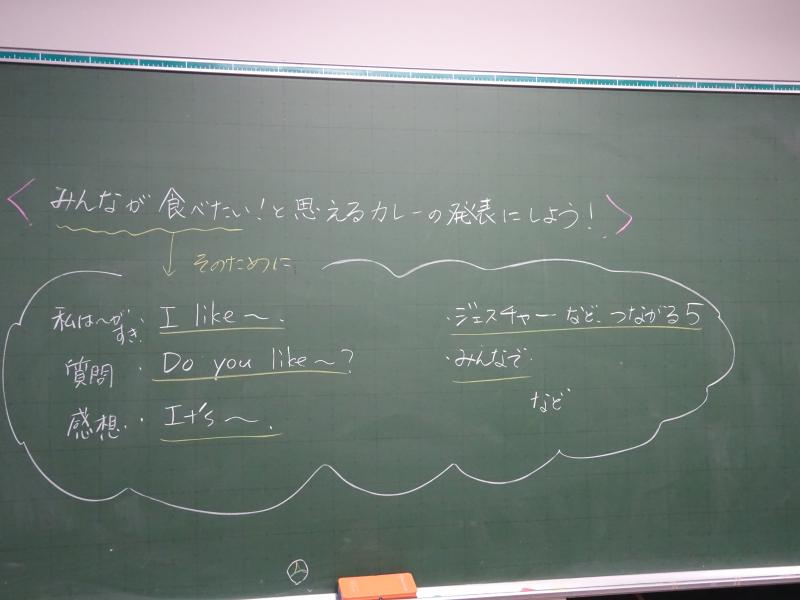 〈みんなが食べたい!と思えるカレーの発表にしよう!〉
そのために
私は〜がすき・ I like 〜.
質問・ Do you like 〜?
感想・・ It's 〜.
・ジェスチャーなど、つながる5
・みんなで
など